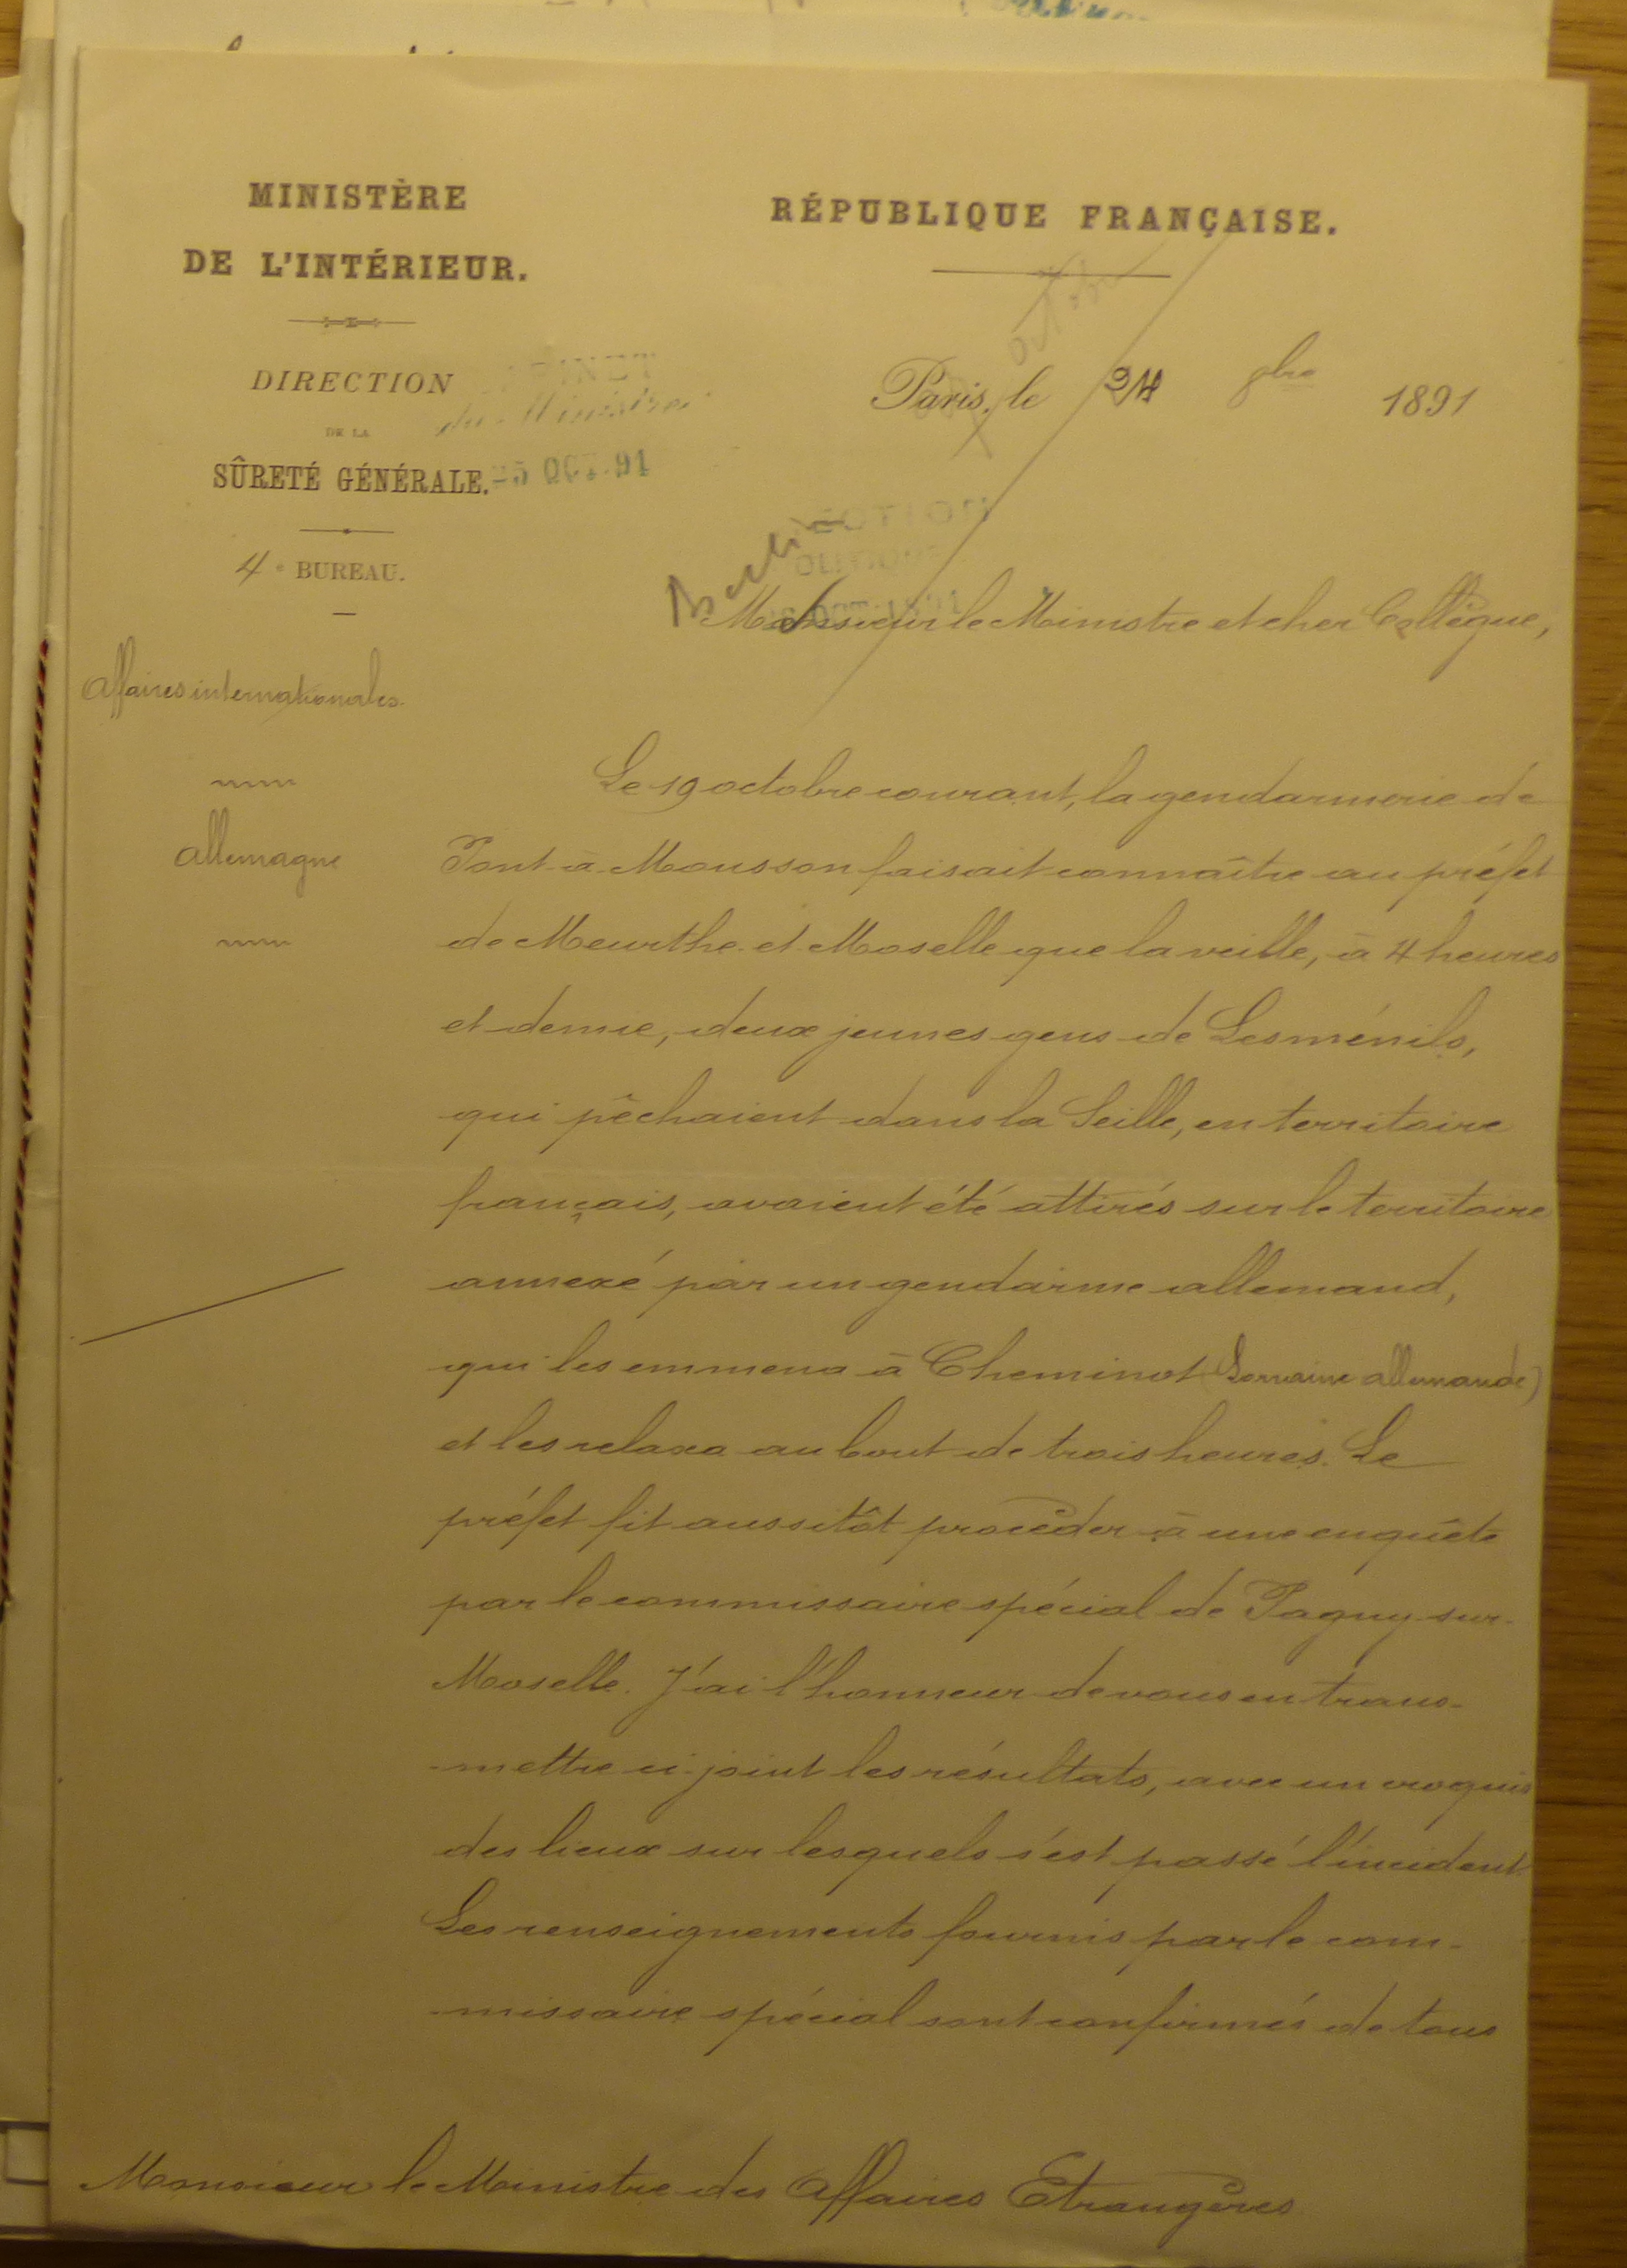 MINISTÈRE
DE L'INTÉRIEUR.
DIRECTION
DE LA
SÛRETÉ GÉNÉRALE.
4e BUREAU.
Affaires internationales.
Allemagne
CABINET
du Ministre
25 OCT. 91
RÉPUBLIQUE FRANÇAISE.
octobre
Paris, le 24 8bre 1891
Berlin
Monsieur le Ministre et cher Collègue,
Le 19 octobre courant, la gendarmerie de
Pont-à-Mousson faisait connaître au préfet
de Meurthe-et-Moselle que la veille, à 4 heures
et demie, deux jeunes gens de Lesménils,
qui pêchaient dans la Seille, en territoire
français, avaient été attirés sur le territoire
annexé par un gendarme allemand,
qui les emmena à Cheminot (Lorraine allemande)
et les relaxa au bout de trois heures. Le
préfet fit aussitôt procéder à une enquête
par le commissaire spécial de Pagny-sur-
Moselle. J'ai l'honneur de vous en trans-
-mettre ci-joint les résultats, avec un croquis
des lieux sur lesquels s'est passé l'incident.
Les renseignements fournis par le com-
-missaire spécial sont confirmés de tous
Monsieur le Ministre des Affaires Etrangères